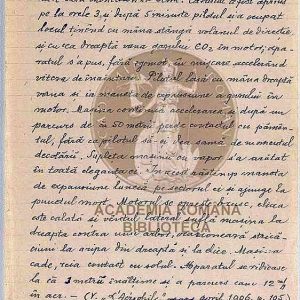 pe la orele 3, și după 5 minute pilotul și-a ocupat
locul ținând cu mâna stângă volanul de direcție
și cu cea dreaptă vana gazului CO2 în motor; apa-
ratul s'a pus, fără sgomot, în mișcare accelerând
viteza de înaintare. Pilotul lasă cu mâna dreaptă
vana și ia maneta de expansiune a gazului în
motor. Mașina continuă accelerarea și după un
parcurs de 50 metri pierde contactul cu pămân-
tul, fără ca pilotul să-și dea seamă de momentul
decolării. Suplețea mașinii cu vapori s'a arătat
în toată eleganța ei. În acest răstimp maneta
de expansiune luneca pe sectorul ei și ajunge la
punctul mort. Motorul se oprește brusc, elicea
este calată și vântul lateral suflă mașina la
dreapta contra unui arbor,
la aripa din dreapta și la elice. Mașina
cade, reia contact cu solul. Aparatul se ridicase
la câte 3 metri înălțime și a parcurs cam 12 m
în aer. - (V. "L'Aérophile" 1906, p. 105
ACADEMIA ROMÂNĂ
BIBLIOTECA